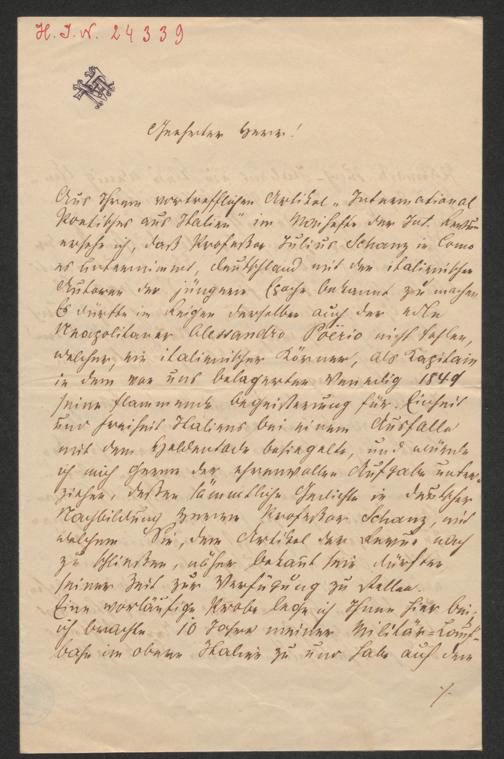 H. I. N. 24339
Geehrter Herr!
Aus Ihrem vortrefflichen Artikel „International
Poetisches aus Italien" im Maihefte der Int. Revue
ersehe ich, daß Professor Julius Schanz in Como
es unternimmt, Deutschland mit den italienischen
Autoren der jüngeren Epoche bekannt zu machen.
Es dürfte im Reigen derselben auch der edle
Neapolitaner Alessandro Poërio nicht fehlen,
welcher, ein italienischer Körner, als Kapitain
in dem von uns belagerten Venedig 1849
seine flammende Begeisterung für Einheit
und Freiheit Italiens bei einem Ausfalle
mit dem Heldentode besiegelte, und würde
ich mich gerne der ehrenvollen Aufgabe unter-
ziehen, dessen sämmtliche Gedichte in deutscher
Nachbildung Herrn Professor Schanz, mit
welchem Sie, dem Artikel der Revue nach
zu schließen, näher bekannt sein dürften
seiner Zeit zur Verfügung zu stellen.
Eine vorläufige Probe lege ich Ihnen hier bei;
ich brachte 10 Jahre meiner Militär-Lauf-
bahn im obern Italien zu und habe auf dem
./.